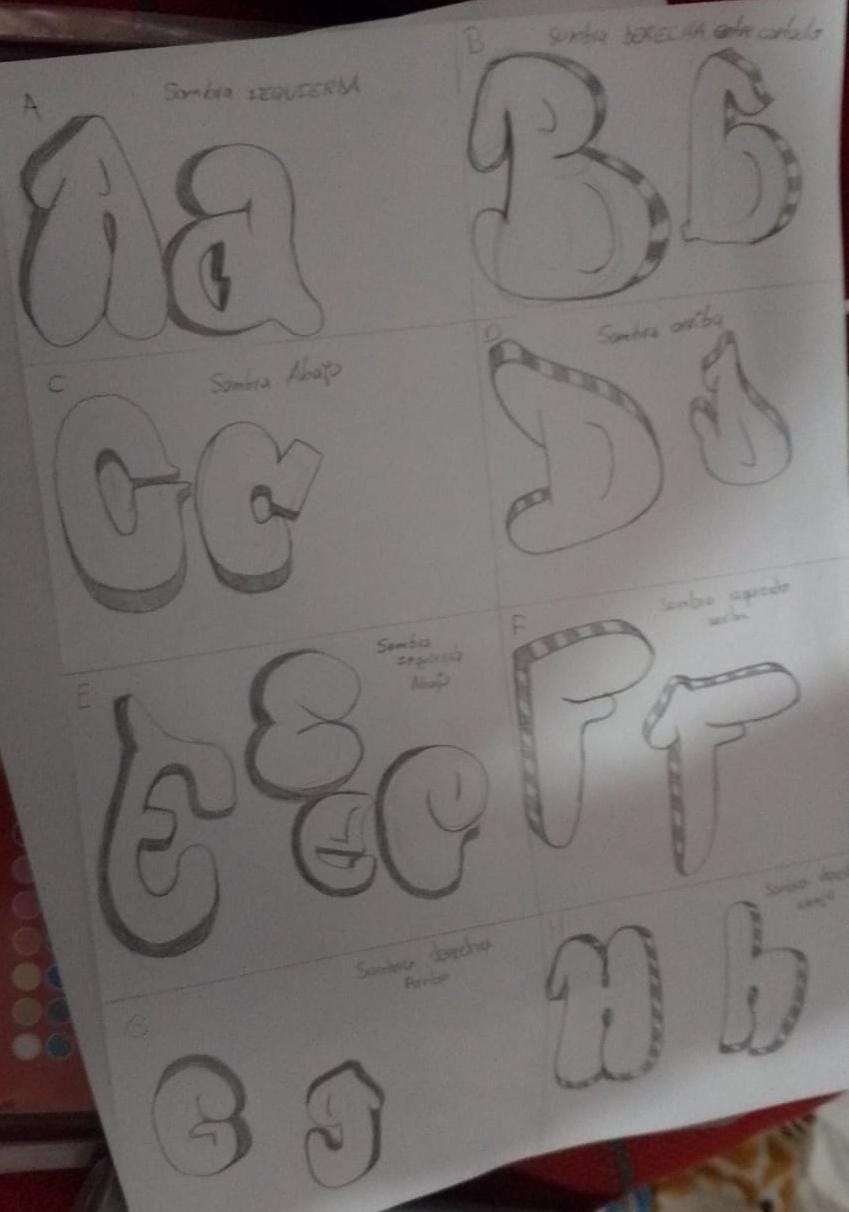 A
Sombra IZQUIERDA
Aa
B
Sombra DERECHA entre cortada
B b
C
Sombra Abajo
C c
D
Sombra arriba
D d
E
Sombra
izquierda
Abajo
E E
e e
F
Sombra izquierda
arriba
F f
G
Sombra derecha
Arriba
G g
H
Sombra derecha
abajo
H h